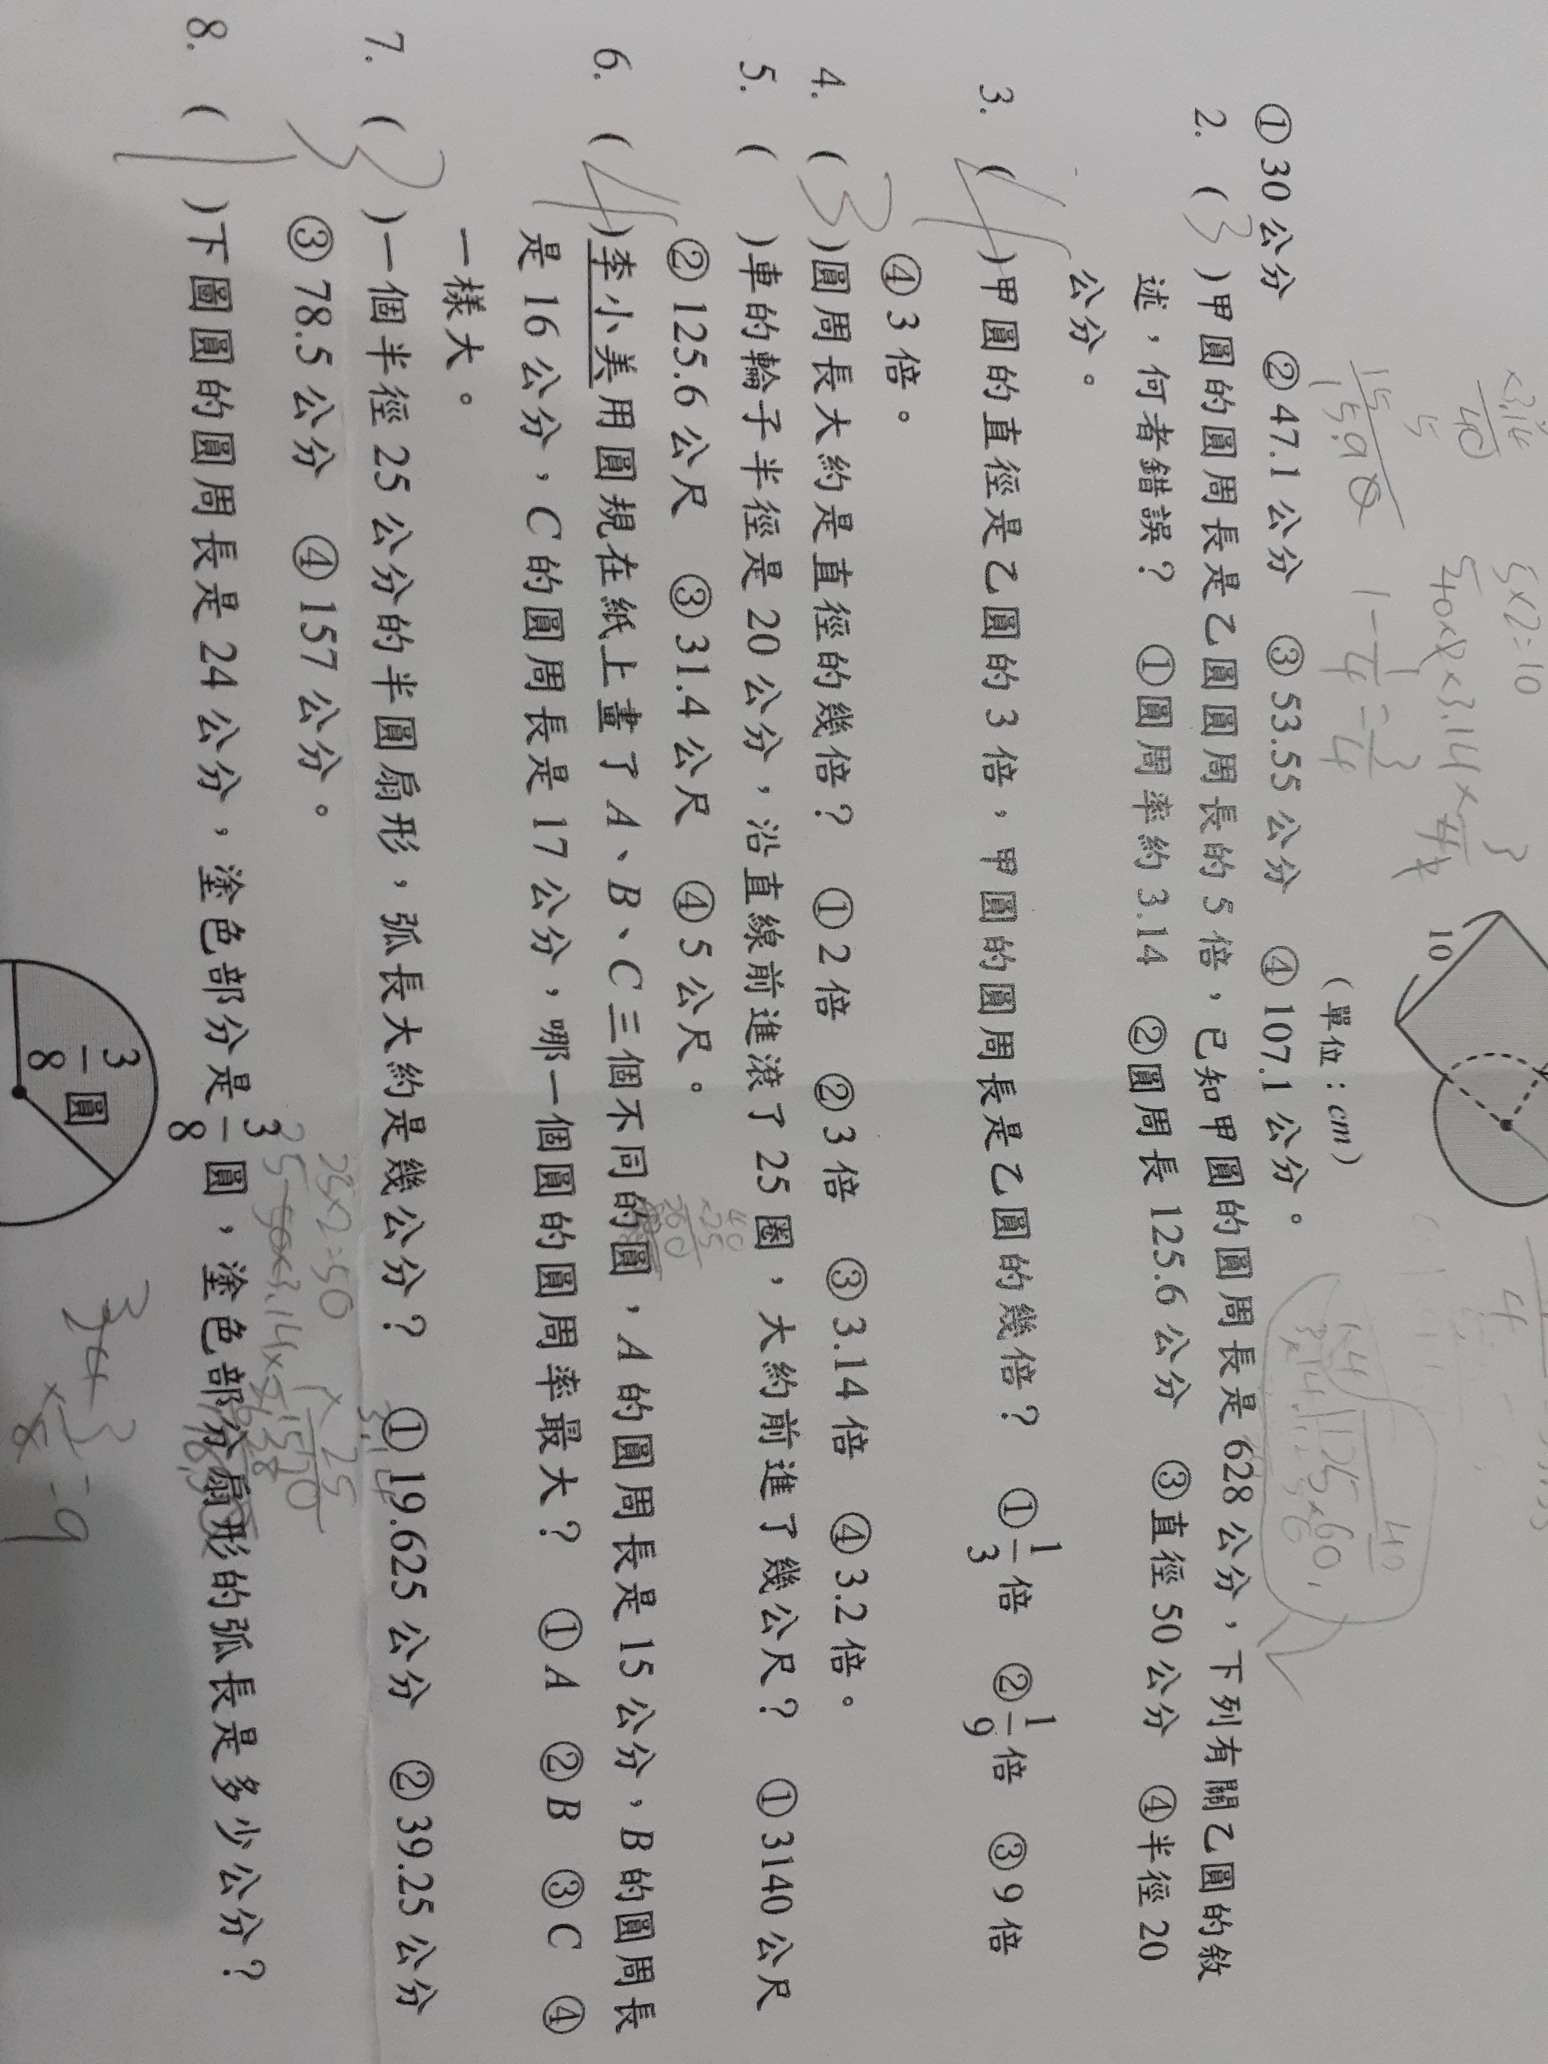 10
（單位：cm）
①30公分　②47.1公分　③53.55公分　④107.1公分。
2.（3）甲圓的圓周長是乙圓圓周長的5倍，已知甲圓的圓周長是628公分，下列有關乙圓的敘
述，何者錯誤？　①圓周率約3.14　②圓周長125.6公分　③直徑50公分　④半徑20
公分。
3.（4）甲圓的直徑是乙圓的3倍，甲圓的圓周長是乙圓的幾倍？　①1/3倍　②1/9倍　③9倍
④3倍。
4.（3）圓周長大約是直徑的幾倍？　①2倍　②3倍　③3.14倍　④3.2倍。
5.（　）車的輪子半徑是20公分，沿直線前進滾了25圈，大約前進了幾公尺？　①3140公尺
②125.6公尺　③31.4公尺　④5公尺。
6.（4）李小美用圓規在紙上畫了A、B、C三個不同的圓，A的圓周長是15公分，B的圓周長
是16公分，C的圓周長是17公分，哪一個圓的圓周率最大？　①A　②B　③C　④
一樣大。
7.（3）一個半徑25公分的半圓扇形，弧長大約是幾公分？　①19.625公分　②39.25公分
3　③78.5公分　④157公分。
8.（1）下圖圓的圓周長是24公分，塗色部分是3/8圓，塗色部分扇形的弧長是多少公分？
3/8圓
5×2=10
×3.14
1-1/4=3/4
25×2=50
40
×25